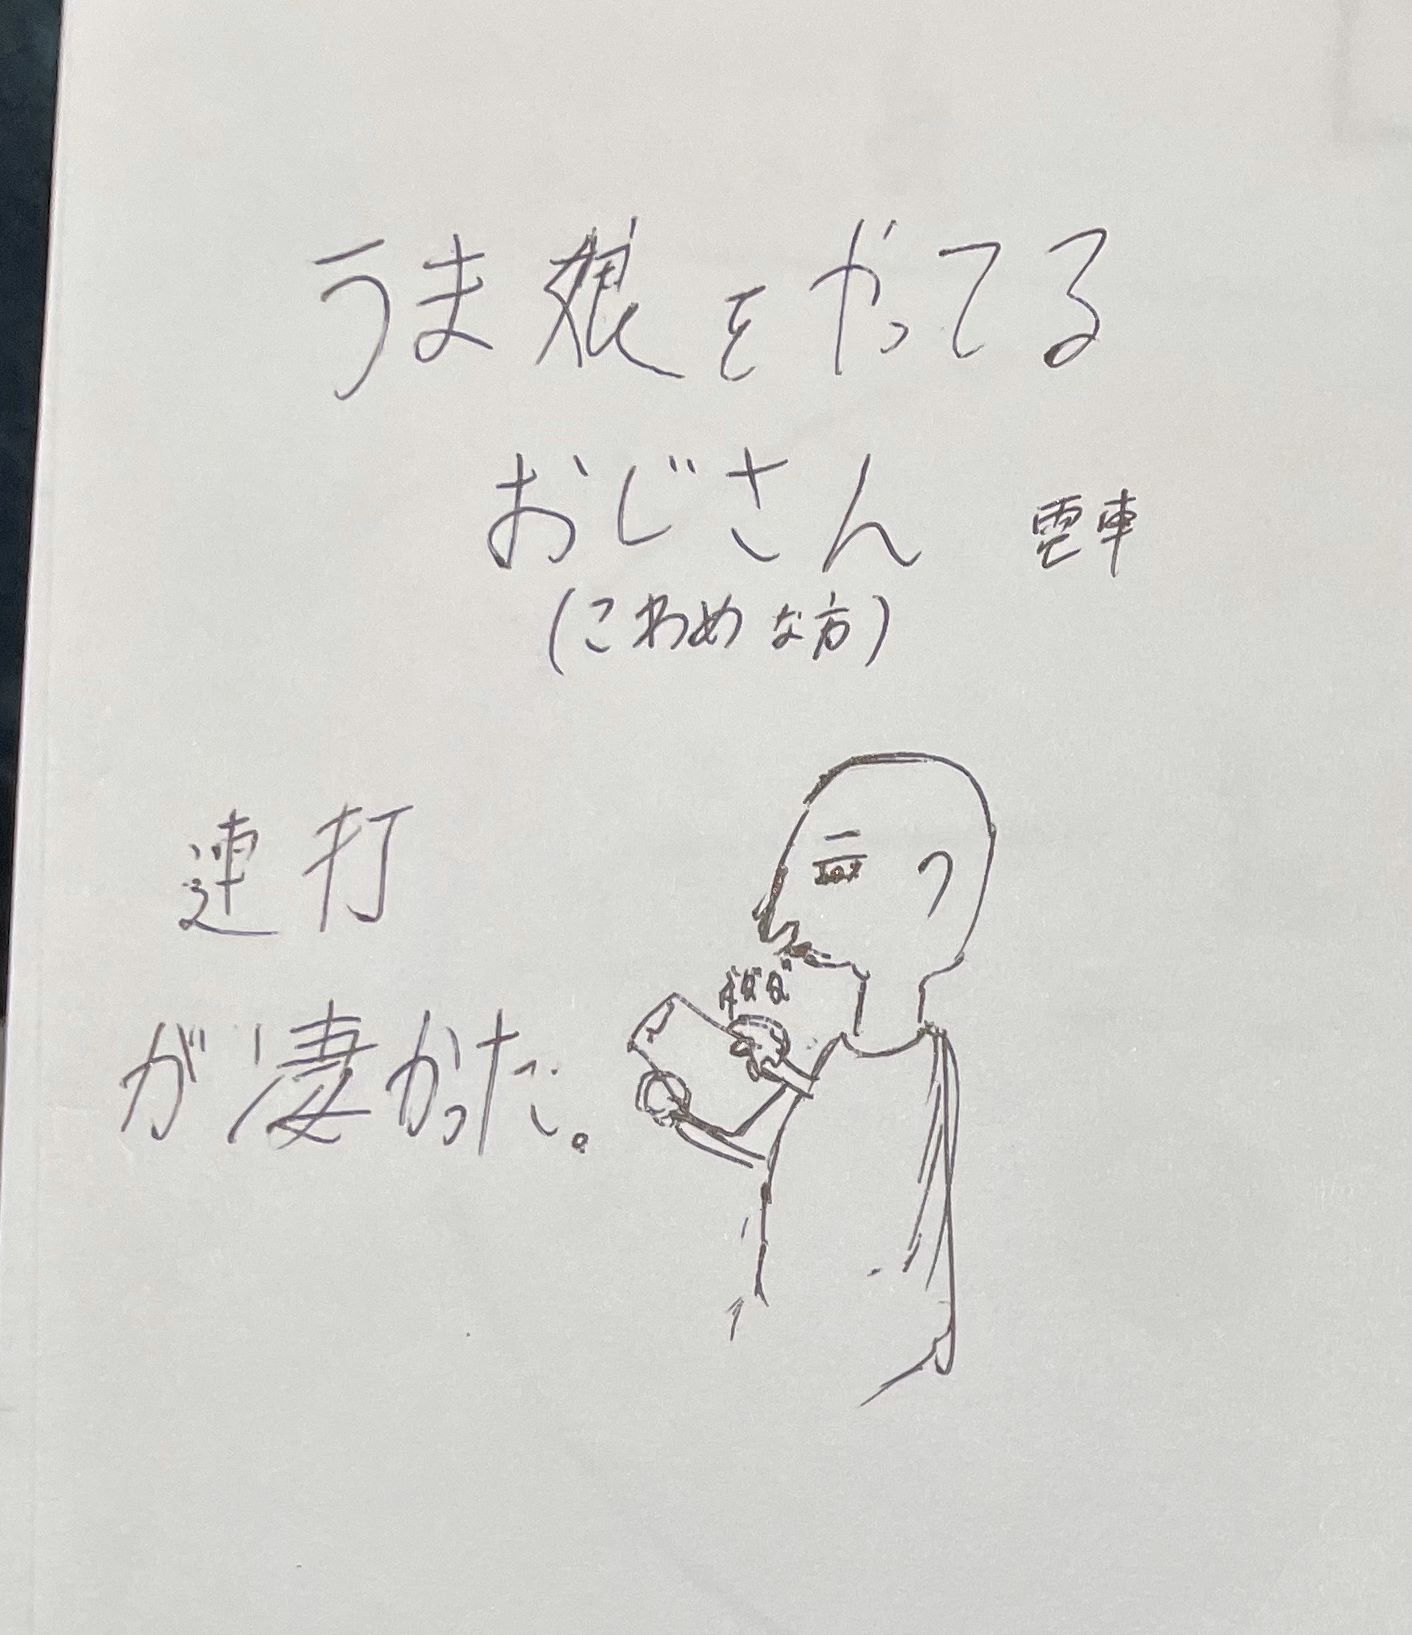 うま娘をやってる
おじさん 電車
(こわめな方)
連打
が凄かった。